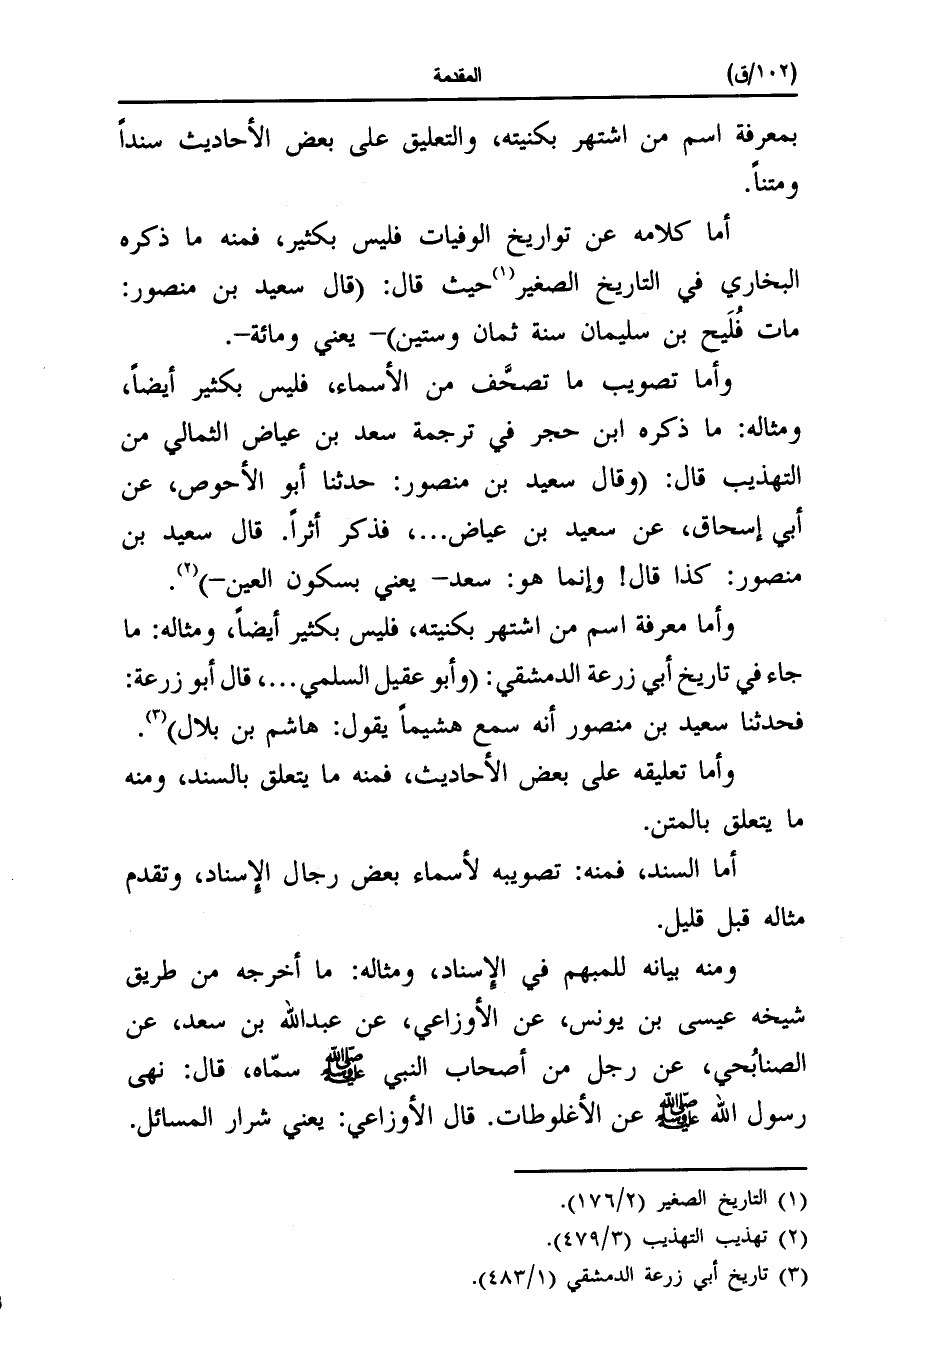 (١٠٢/ق) المقدمة
بمعرفة اسم من اشتهر بكنيته، والتعليق على بعض الأحاديث سنداً
ومتناً.
أما كلامه عن تواريخ الوفيات فليس بكثير، فمنه ما ذكره
البخاري في التاريخ الصغير(١)حيث قال: (قال سعيد بن منصور:
مات فُلَيح بن سليمان سنة ثمان وستين)– يعني ومائة–.
وأما تصويب ما تصحَّف من الأسماء، فليس بكثير أيضاً،
ومثاله: ما ذكره ابن حجر في ترجمة سعد بن عياض الثمالي من
التهذيب قال: (وقال سعيد بن منصور: حدثنا أبو الأحوص، عن
أبي إسحاق، عن سعيد بن عياض...، فذكر أثراً. قال سعيد بن
منصور: كذا قال! وإنما هو: سعد– يعني بسكون العين–)(٢).
وأما معرفة اسم من اشتهر بكنيته، فليس بكثير أيضاً، ومثاله: ما
جاء في تاريخ أبي زرعة الدمشقي: (وأبو عقيل السلمي...، قال أبو زرعة:
فحدثنا سعيد بن منصور أنه سمع هشيماً يقول: هاشم بن بلال)(٣).
وأما تعليقه على بعض الأحاديث، فمنه ما يتعلق بالسند، ومنه
ما يتعلق بالمتن.
أما السند، فمنه: تصويبه لأسماء بعض رجال الإسناد، وتقدم
مثاله قبل قليل.
ومنه بيانه للمبهم في الإسناد، ومثاله: ما أخرجه من طريق
شيخه عيسى بن يونس، عن الأوزاعي، عن عبدالله بن سعد، عن
الصنابُحي، عن رجل من أصحاب النبي ﷺ سمّاه، قال: نهى
رسول الله ﷺ عن الأغلوطات. قال الأوزاعي: يعني شرار المسائل.
(١) التاريخ الصغير (١٧٦/٢).
(٢) تهذيب التهذيب (٤٧٩/٣).
(٣) تاريخ أبي زرعة الدمشقي (٤٨٣/١).